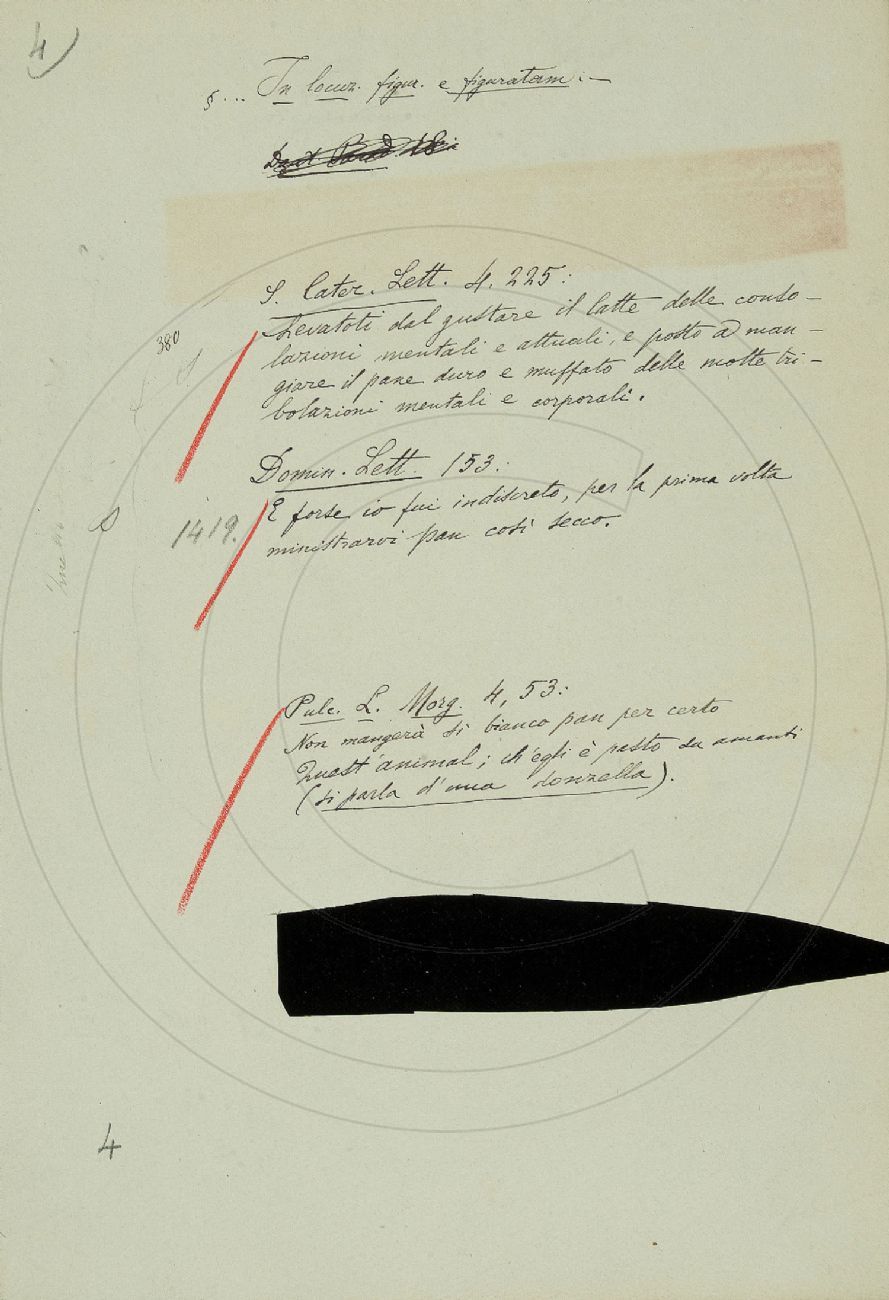 4)
§... In locuz. figur. e figuratam.:—
Dant. Parad. 18.
S. Cater. Lett. 4. 225:
Levatoti dal gustare il latte delle conso-
380
lazioni mentali e attuali, e posto a man-
giare il pane duro e muffato delle molte tri-
bolazioni mentali e corporali.
Domin. Lett. 153:
E forse io fui indiscreto, per la prima volta
1419.
ministrarvi pan così secco.
Pulc. L. Morg. 4, 53:
Non mangerà sì bianco pan per certo
Quest'animal; ch'egli è pasto da amanti
(si parla d'una donzella).
4